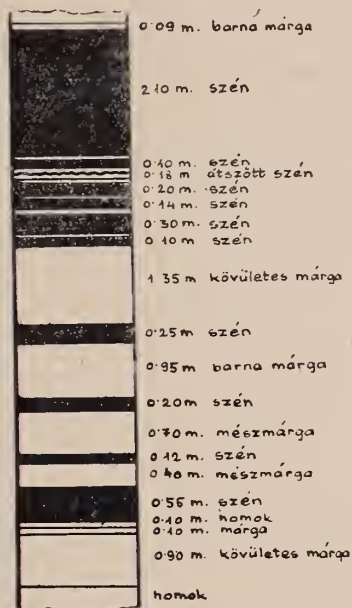 0·09 m. barna márga
2·10 m. szén
0·10 m. szén
0·18 m. átszőtt szén
0·20 m. szén
0·14 m. szén
0·30 m. szén
0·10 m. szén
1·35 m kövületes márga
0·25 m szén
0·95 m barna márga
0·20 m. szén
0·70 m. mészmárga
0·12 m. szén
0·40 m. mészmárga
0·55 m. szén
0·10 m. homok
0·10 m. márga
0·90 m. kövületes márga
homok